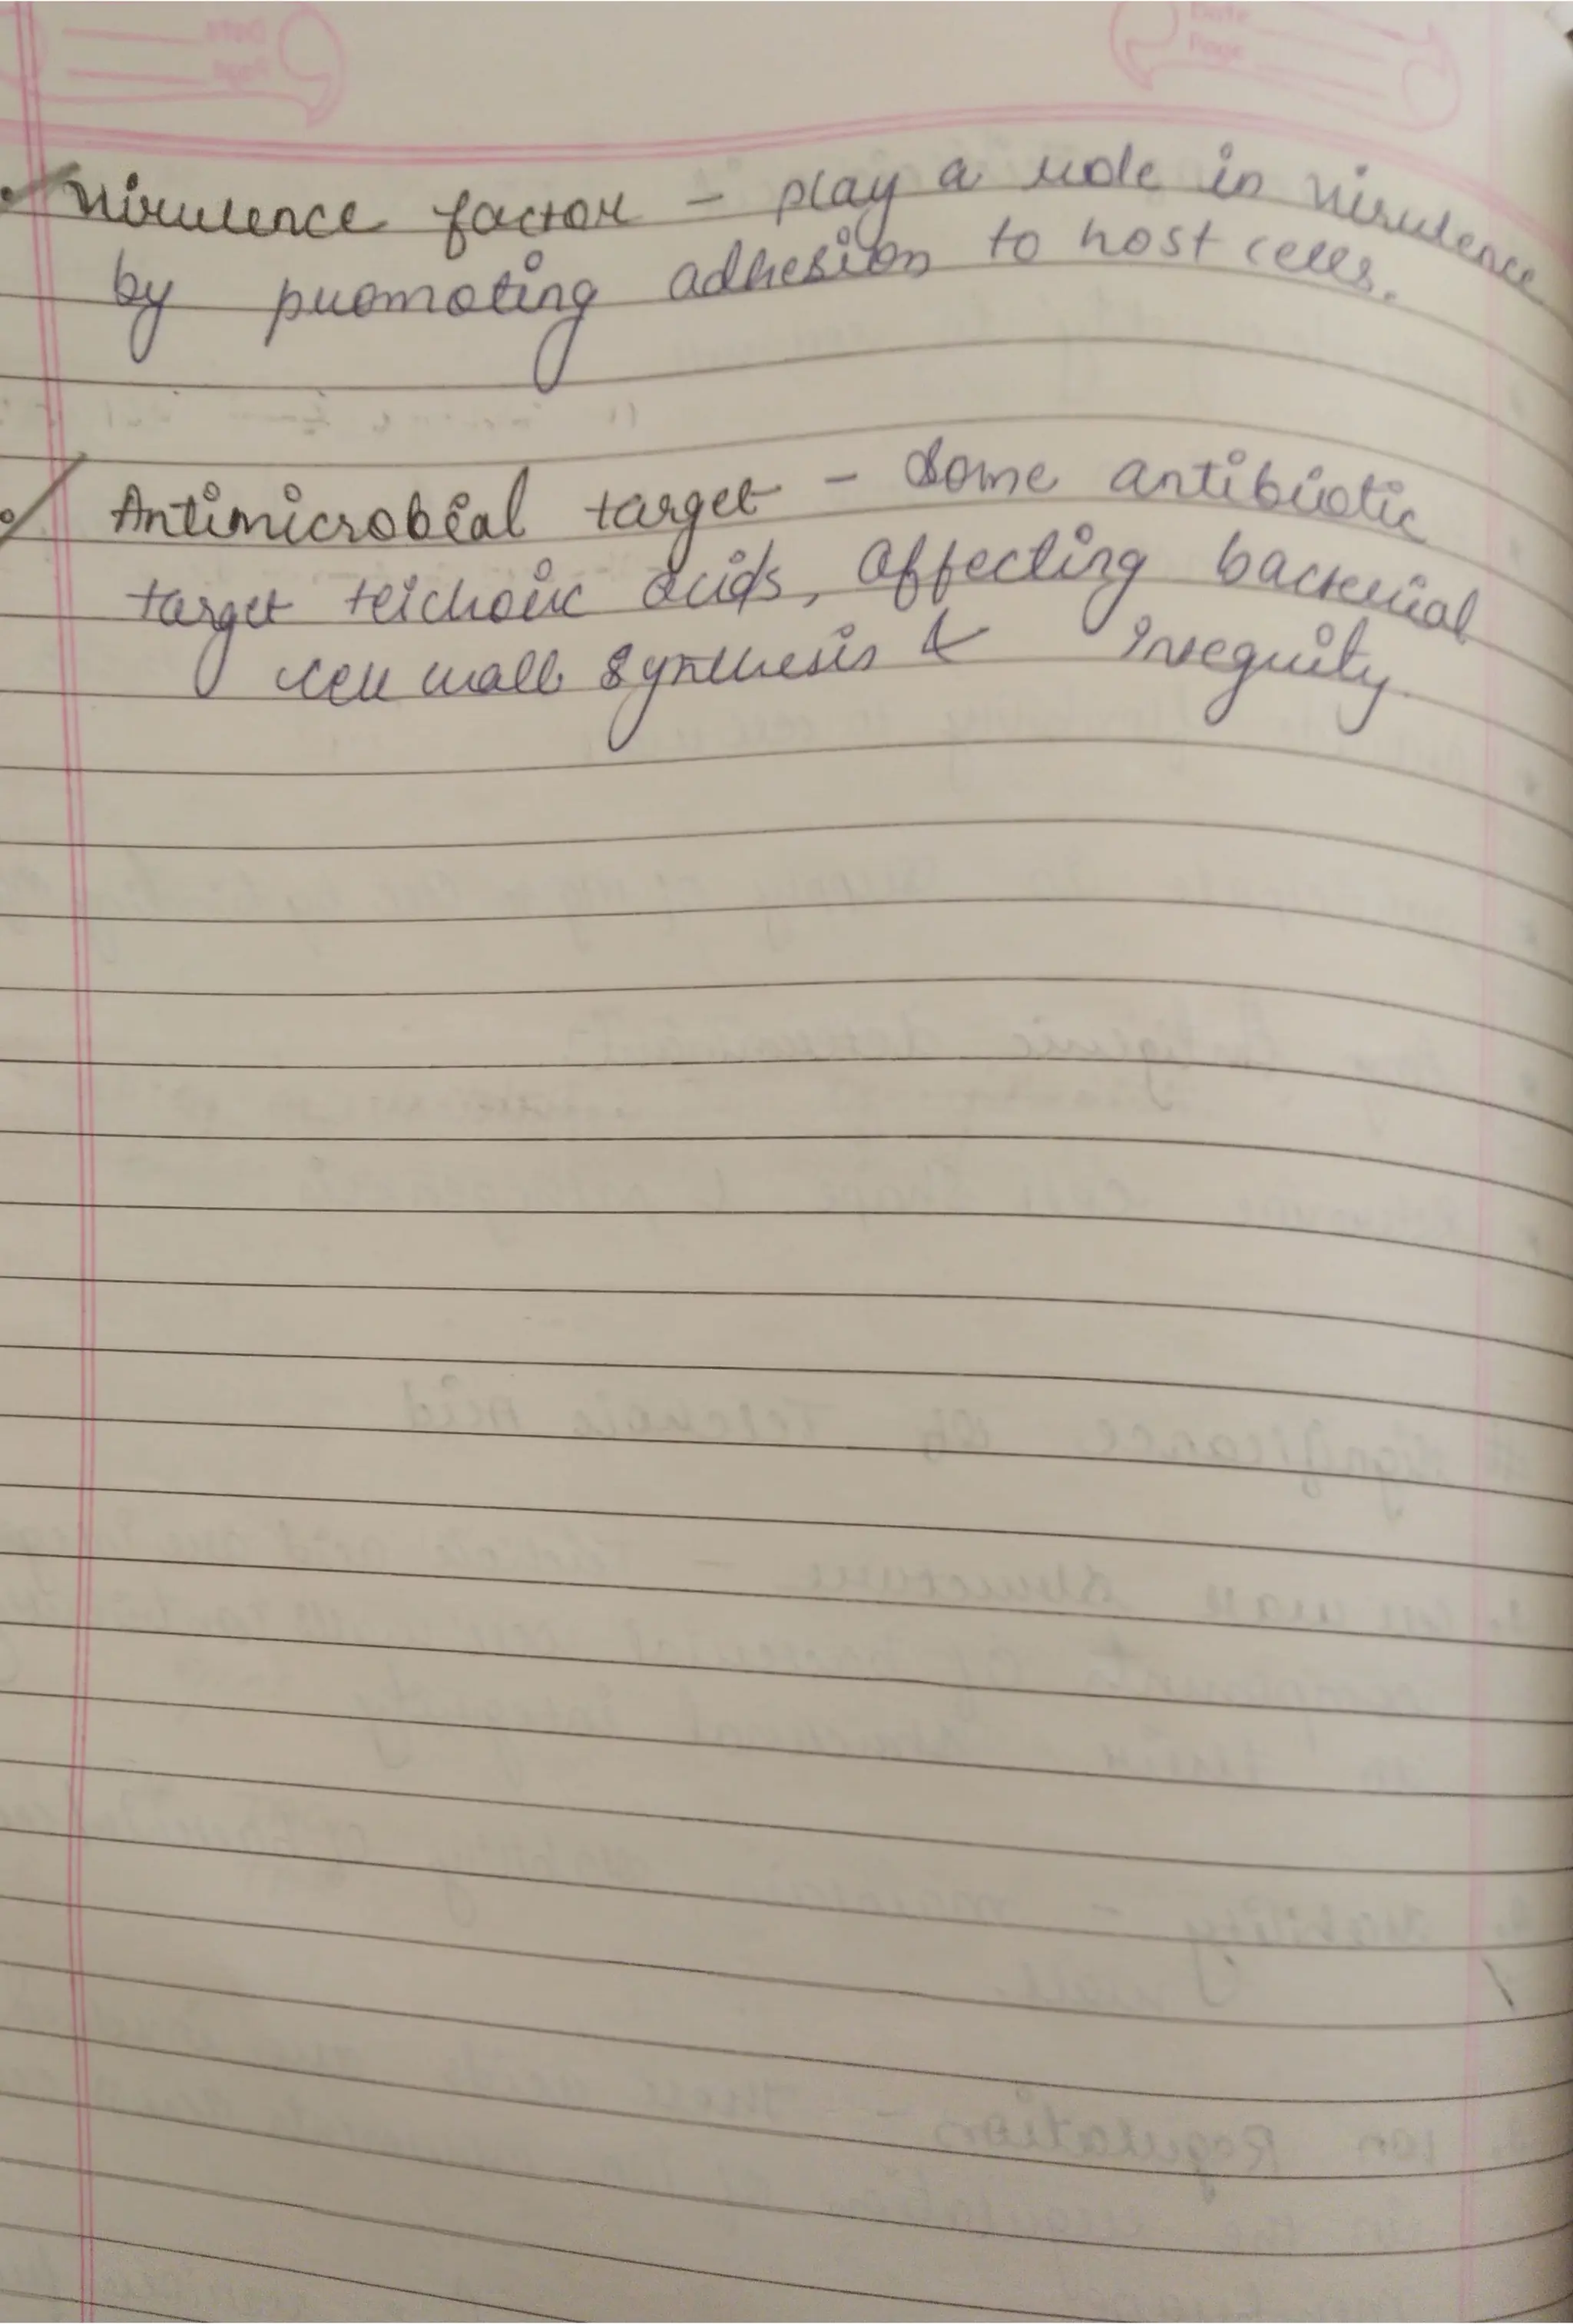 Date
Page
Date
Page
• Virulence factor - play a role in virulence
by promoting adhesion to host cells.
• Antimicrobial target - Some antibiotic
target teichoic acids, affecting bacterial
cell wall synthesis &